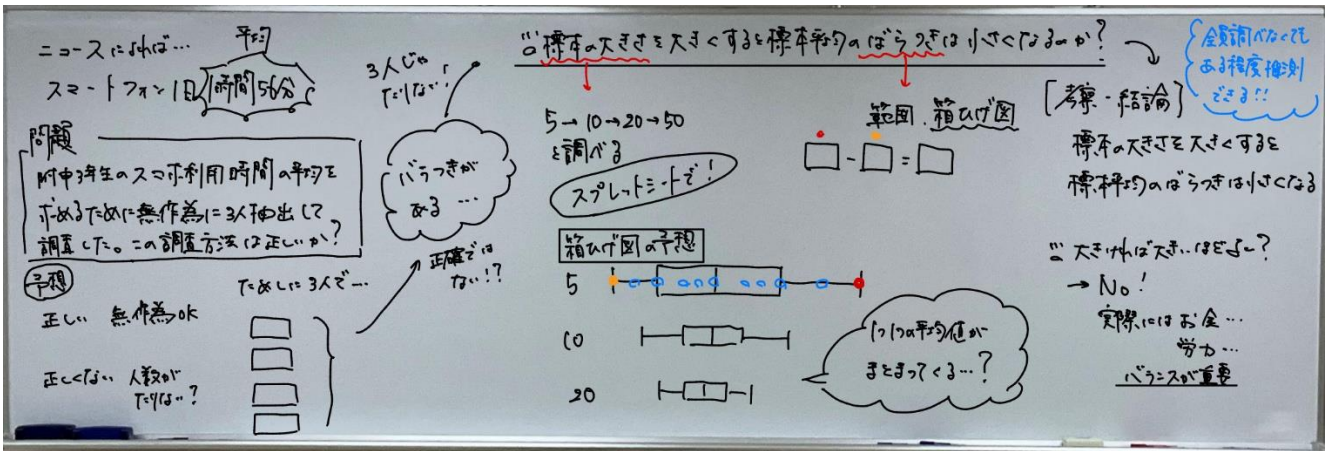 ニュースによれば…
平均
スマートフォン 1日 1時間56分
問題
附中3年生のスマホ利用時間の平均を
求めるために無作為に3人抽出して
調査した。この調査方法は正しいか?
予想
正しい 無作為OK
正しくない 人数が
たりない?
ためしに3人で…
3人じゃ
たりない!
バラつきが
ある…
正確では
ない!?
標本の大きさを大きくすると標本平均のばらつきは小さくなるのか?
5→10→20→50
を調べる
スプレッドシートで!
範囲、箱ひげ図
□-□=□
箱ひげ図の予想
5
10
20
1つ1つの平均値が
まとまってくる…?
全員調べなくても
ある程度推測
できる!!
[考察・結論]
標本の大きさを大きくすると
標本平均のばらつきは小さくなる
大きければ大きいほどよい?
→No!
実際にはお金…
労力…
バランスが重要